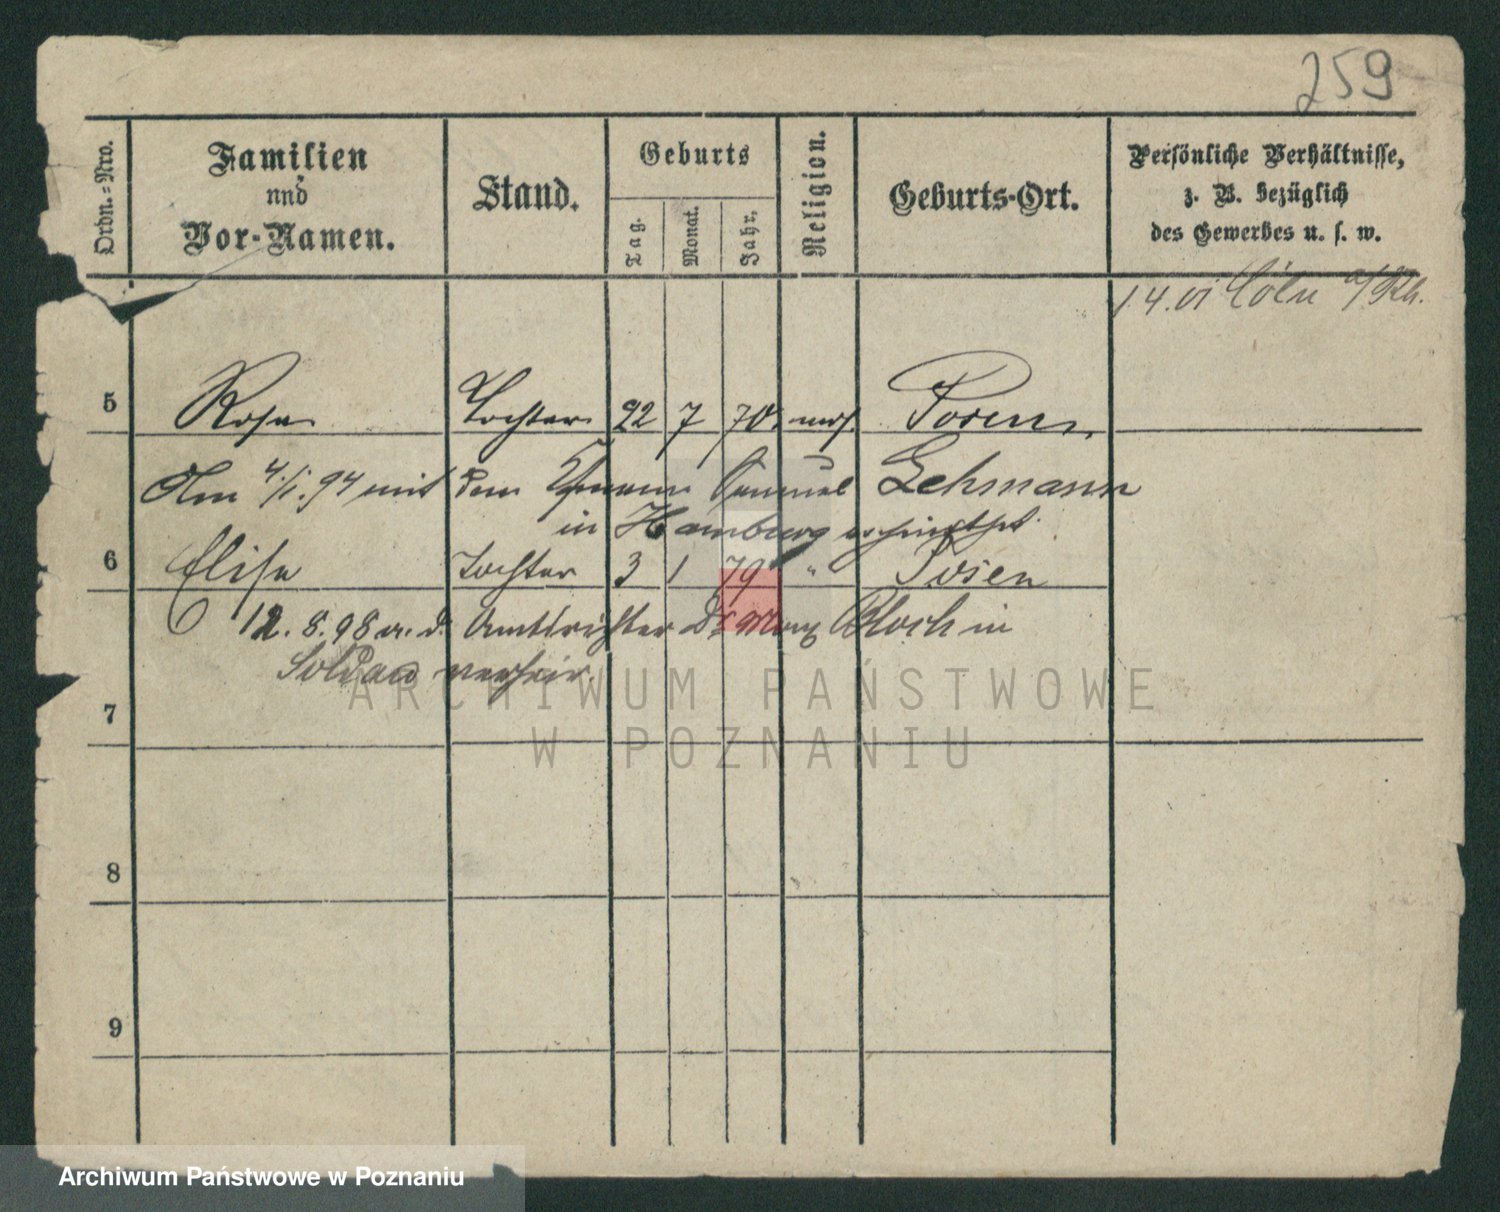 259
Ordn.=Nro.
Familien
und
Vor-Namen.
Stand.
Geburts
Tag.
Monat.
Jahr.
Religion.
Geburts-Ort.
Persönliche Verhältnisse,
z. B. bezüglich
des Gewerbes u. s. w.
14. VI Cöln a/Rh.
5 Rosa Tochter 22 7 70 mos. Posen
Am 4/1. 94 mit dem Samuel Lehmann
in Hamburg
6 Elise Tochter 3 1 79 " Posen
12. 8. 98 m. d. Amtsrichter Dr Max Bloch in
Soldau verheir.
7
8
9
ARCHIWUM PAŃSTWOWE
W POZNANIU
Archiwum Państwowe w Poznaniu